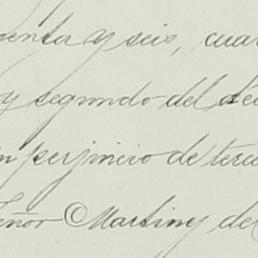 enta y seis, cua
y segundo del
in perjuicio de terce
eñor Martiny del